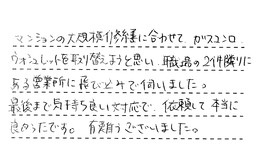 マンションの大規模修繕に合わせて、ガスコンロ
ウォシュレットを取り替えようと思い、職場の2件隣りに
ある営業所に飛び込みで伺いました。
最後まで気持ち良い対応で、依頼して本当に
良かったです。有難うございました。